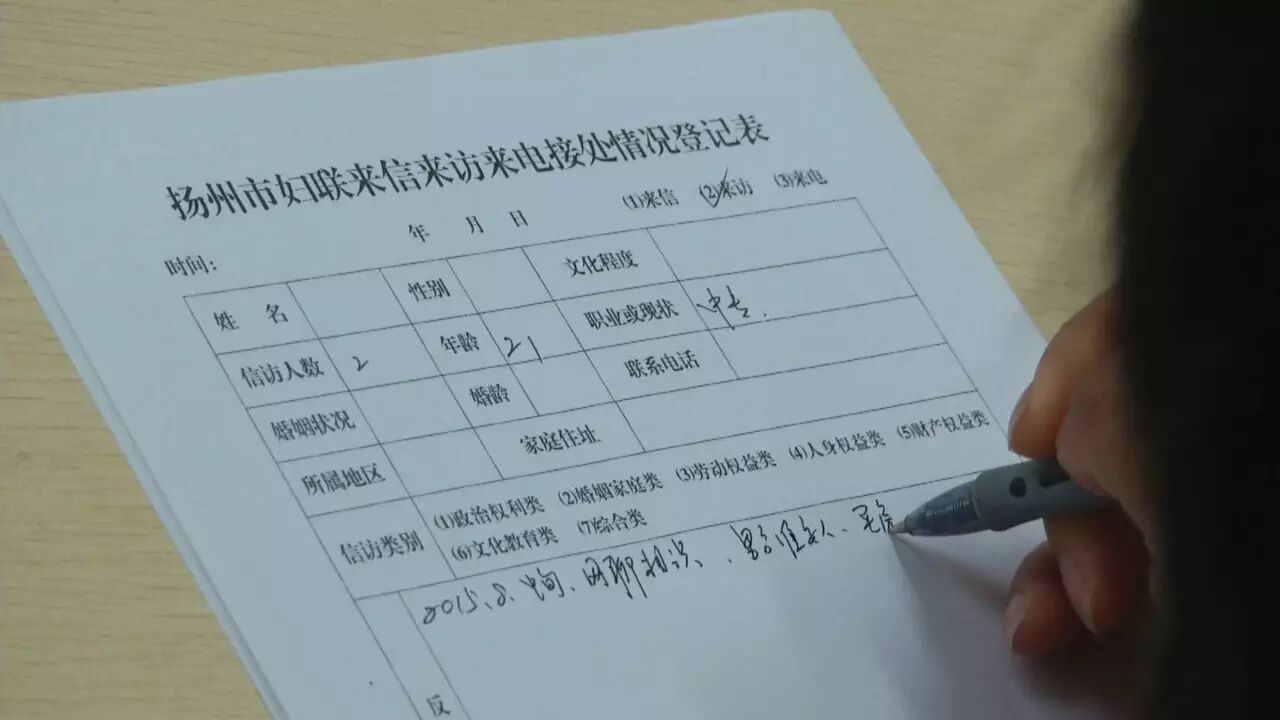 扬州市妇联来信来访来电接处情况登记表
时间: 年 月 日 (1)来信 (2)来访 (3)来电
姓 名 性别 文化程度
信访人数 2 年龄 21 职业或现状 中专.
婚姻状况 婚龄 联系电话
所属地区 家庭住址
信访类别 (1)政治权利类 (2)婚姻家庭类 (3)劳动权益类 (4)人身权益类 (5)财产权益类
(6)文化教育类 (7)综合类
2015、8、中旬、网聊相识、
反